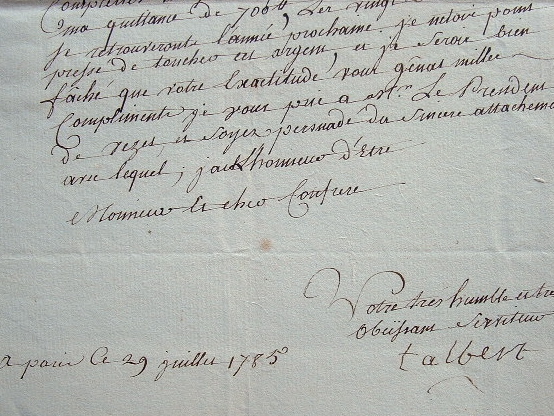 ma quittance de 700# Les vingt
se retrouveront l'année prochaine. je n'etois point
pressé de toucher cet argent et je serois bien
fâché que votre Exactitude, vous gênat mille
Compliments je vous prie a Mr. Le President
de vezet et soyez persuadé du sincere attachement
avec lequel, j'ai l'honneur d'Etre
Monsieur et cher Confrere
Votre très humble et très
Obeissant Serviteur
talbert
a paris Ce 29 juillet 1785